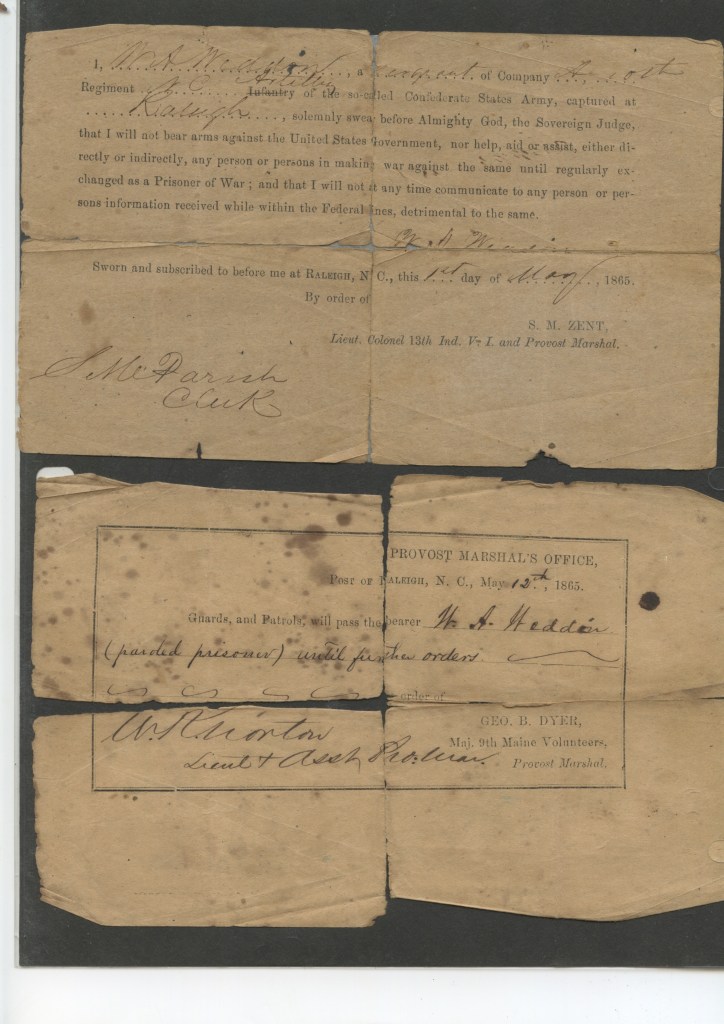 I, W. A. Weddin, a Sergeant of Company A, 10th
Regiment N.C. Artillery Infantry of the so-called Confederate States Army, captured at
Raleigh, solemnly swear before Almighty God, the Sovereign Judge,
that I will not bear arms against the United States Government, nor help, aid or assist, either di-
rectly or indirectly, any person or persons in making war against the same until regularly ex-
changed as a Prisoner of War; and that I will not at any time communicate to any person or per-
sons information received while within the Federal lines, detrimental to the same.
W. A. Weddin
Sworn and subscribed to before me at RALEIGH, N. C., this 1st day of May, 1865.
By order of
S. M. ZENT,
Lieut. Colonel 13th Ind. V. I. and Provost Marshal.
S Mc Parish
Clerk
PROVOST MARSHAL'S OFFICE,
POST OF RALEIGH, N. C., May 12th, 1865.
Guards, and Patrols, will pass the bearer W. A. Weddin
(paroled prisoner) until further orders
order of
GEO. B. DYER,
W. K. Norton
Maj. 9th Maine Volunteers,
Lieut & Asst Pro. Mar.
Provost Marshal.